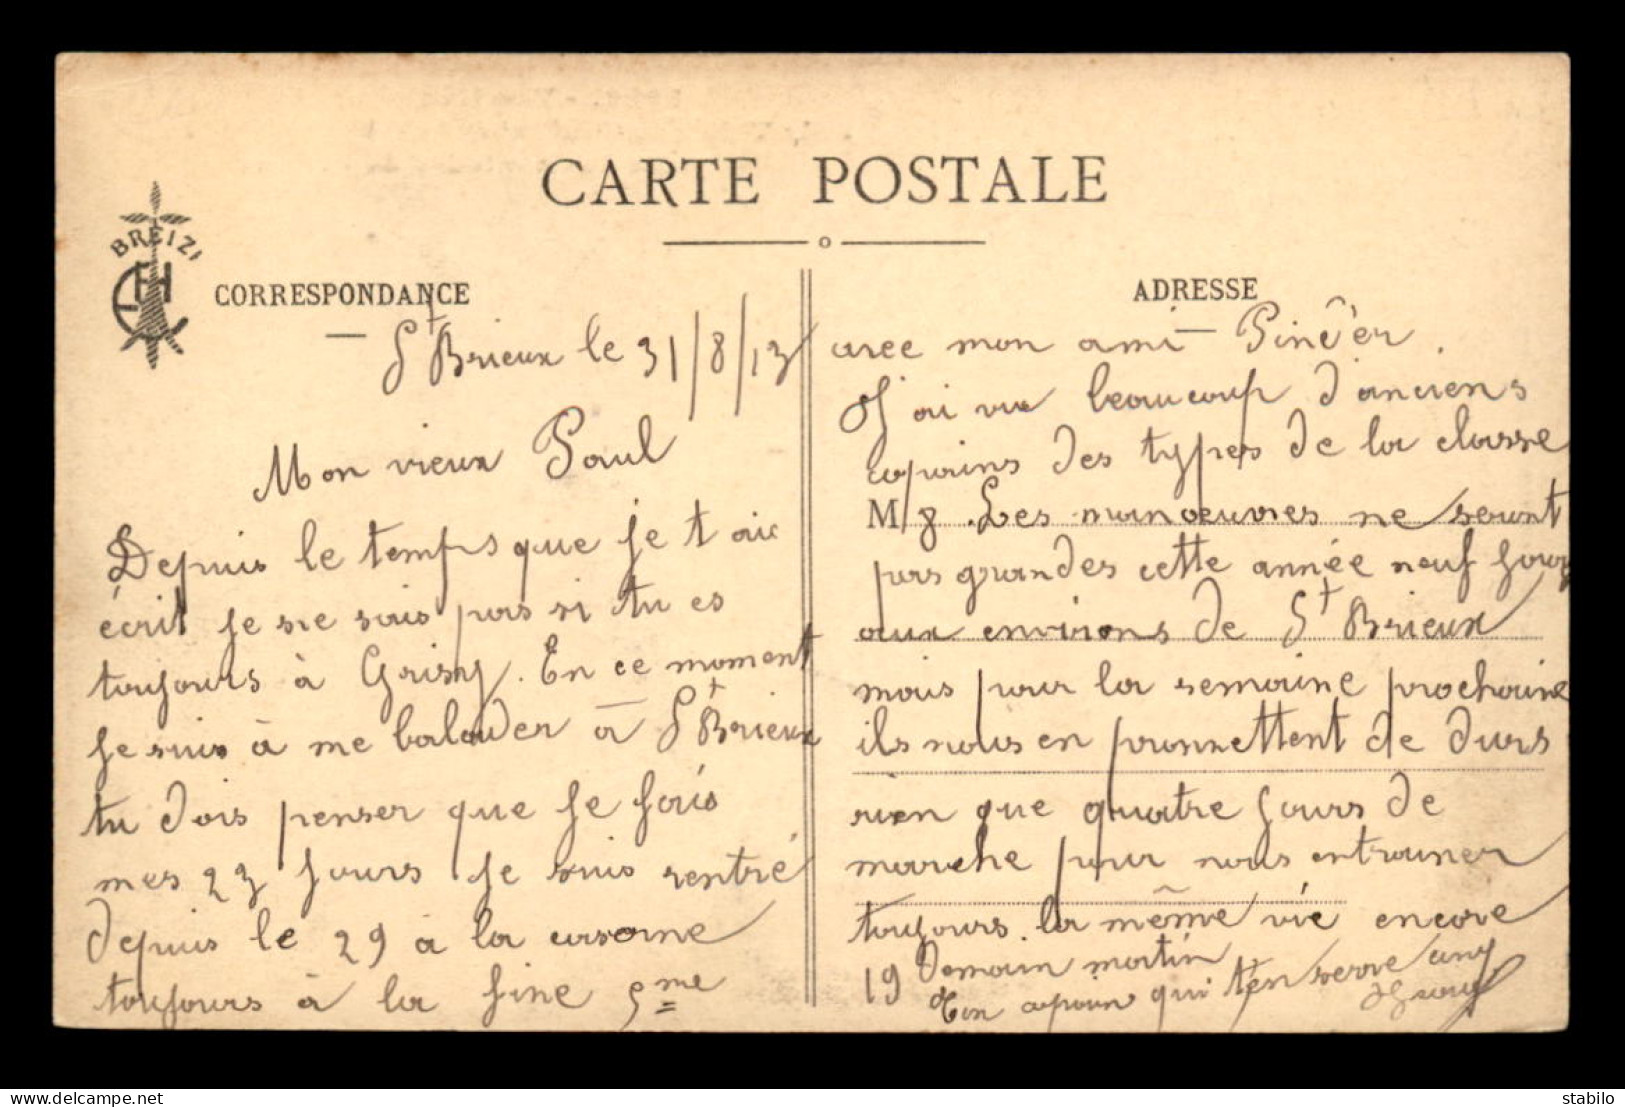 CARTE POSTALE
BREIZ
EH
CORRESPONDANCE
St Brieux le 31/8/13
Mon vieux Paul
Depuis le temps que je t ais
écrit je ne sais pas si tu es
toujours à Grisy. En ce moment
je suis à me balader à St Brieux
tu dois penser que je fais
mes 23 jours je suis rentré
depuis le 29 à la caserne
toujours à la fine 5me
ADRESSE
avec mon ami
J'ai vu beaucoup d'anciens
copains des types de la classe
M
8. Les manoeuvres ne seront
pas grandes cette année neuf jours
aux environs de St Brieux
mais pour la semaine prochaine
ils nous en promettent de durs
rien que quatre jours de
marche pour nous entrainer
toujours la même vie encore
19 demain matin
Ton copain qui t'en serre cinq
delcampe.net
stabilo